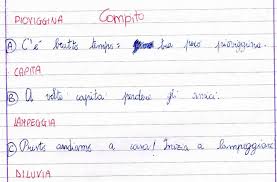 PIOVIGGINA Compito
(A) C'è brutto tempo: tra poco pioviggina.
CAPITA
(B) A volte capita perdere gli amici.
LAMPEGGIA
(C) Presto andiamo a casa! Inizia a lampeggiare
DILUVIA